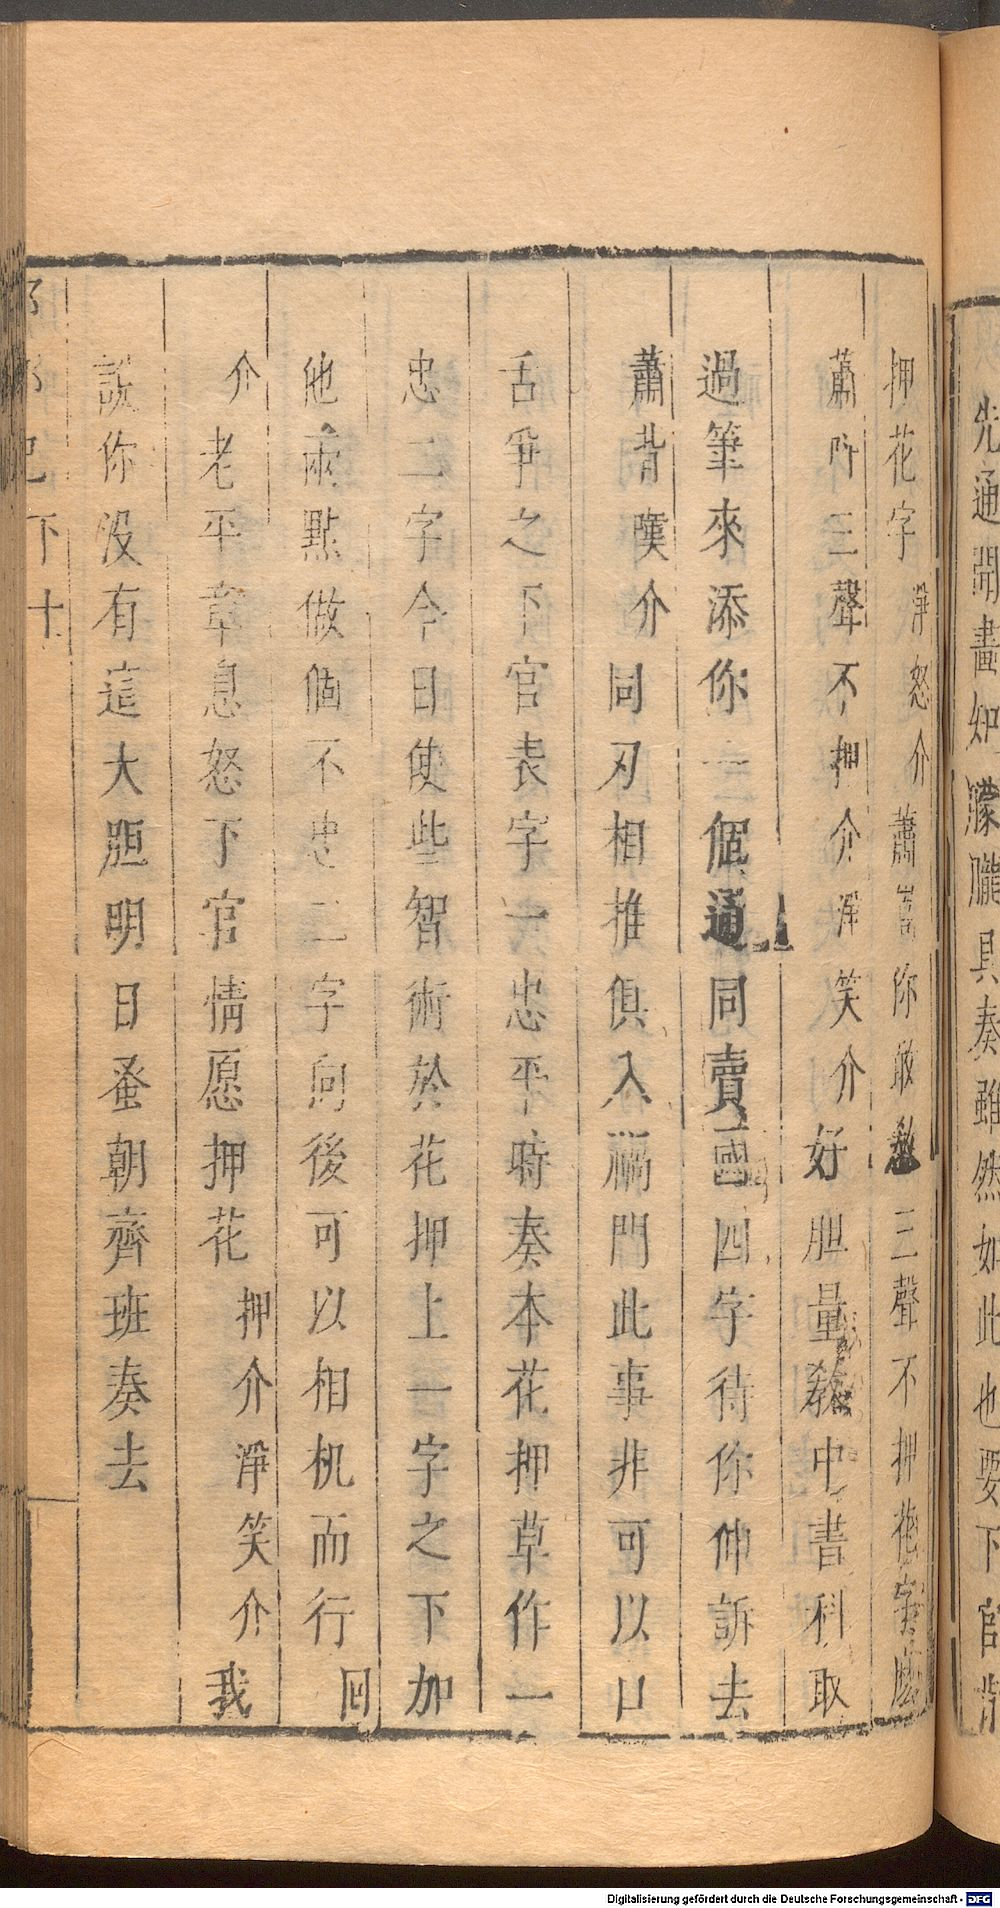 先通開畫如朦朧具奏雖然如此也要下官背
押花字淨怒介蕭嵩你敢敎三聲不押花字麽
蕭吁三聲不押介淨笑介好胆量敎中書科取
過筆來添你一個通同賣國四字待你伸訴去
蕭背嘆介同刃相推俱入禍門此事非可以口
舌爭之下官表字一忠平時奏本花押草作一
忠二字今日使些智術於花押上一字之下加
他兩點做個不忠二字向後可以相机而行回
介老平章息怒下官情愿押花押介淨笑介我
說你没有這大胆明日蚤朝齊班奏去
記下十
Digitalisierung gefördert durch die Deutsche Forschungsgemeinschaft - DFG